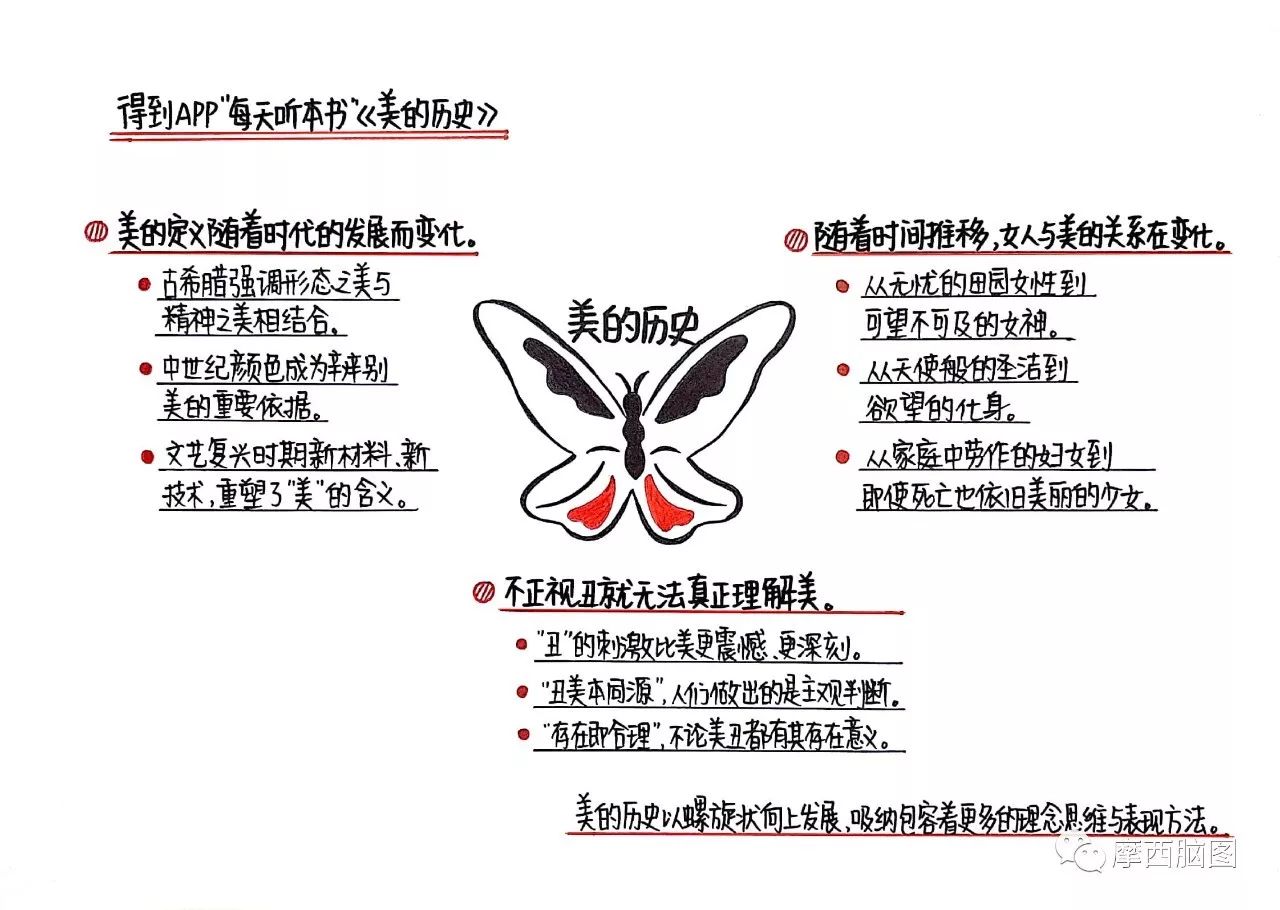 得到APP"每天听本书"《美的历史》
美的定义随着时代的发展而变化。
古希腊强调形态之美与
精神之美相结合。
中世纪颜色成为辨别
美的重要依据。
文艺复兴时期新材料、新
技术,重塑了"美"的含义。
美的历史
随着时间推移,女人与美的关系在变化。
从无忧的田园女性到
可望不可及的女神。
从天使般的圣洁到
欲望的化身。
从家庭中劳作的妇女到
即使死亡也依旧美丽的少女。
不正视丑就无法真正理解美。
"丑"的刺激比美更震憾、更深刻。
"丑美本同源",人们做出的是主观判断。
"存在即合理",不论美丑都有其存在意义。
美的历史以螺旋状向上发展、吸纳包容着更多的理念思维与表现方法。
摩西脑图